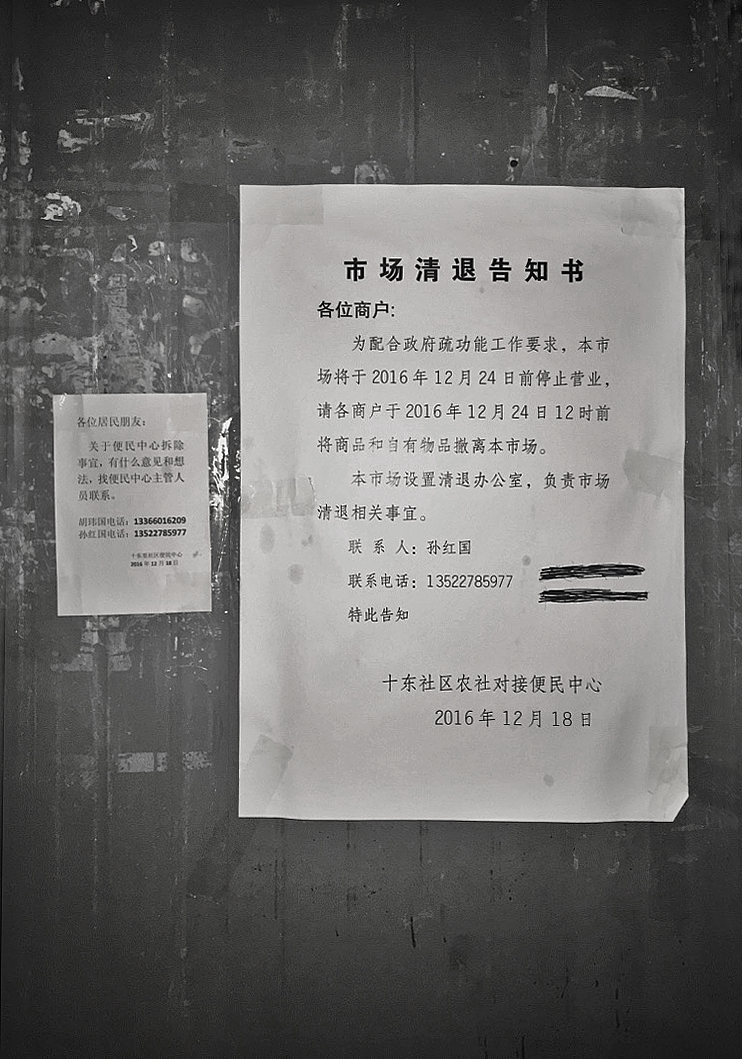 市场清退告知书
各位商户:
为配合政府疏功能工作要求，本市
场将于 2016 年 12 月 24 日前停止营业，
请各商户于 2016 年 12 月 24 日 12 时前
将商品和自有物品撤离本市场。
本市场设置清退办公室，负责市场
清退相关事宜。
联 系 人：孙红国
联系电话：13522785977
特此告知
十东社区农社对接便民中心
2016 年 12 月 18 日
各位居民朋友：
关于便民中心拆除
事宜，有什么意见和想
法，找便民中心主管人
员联系。
胡玮国电话：13366016209
孙红国电话：13522785977
十东社区便民中心
2016 年 12 月 18 日